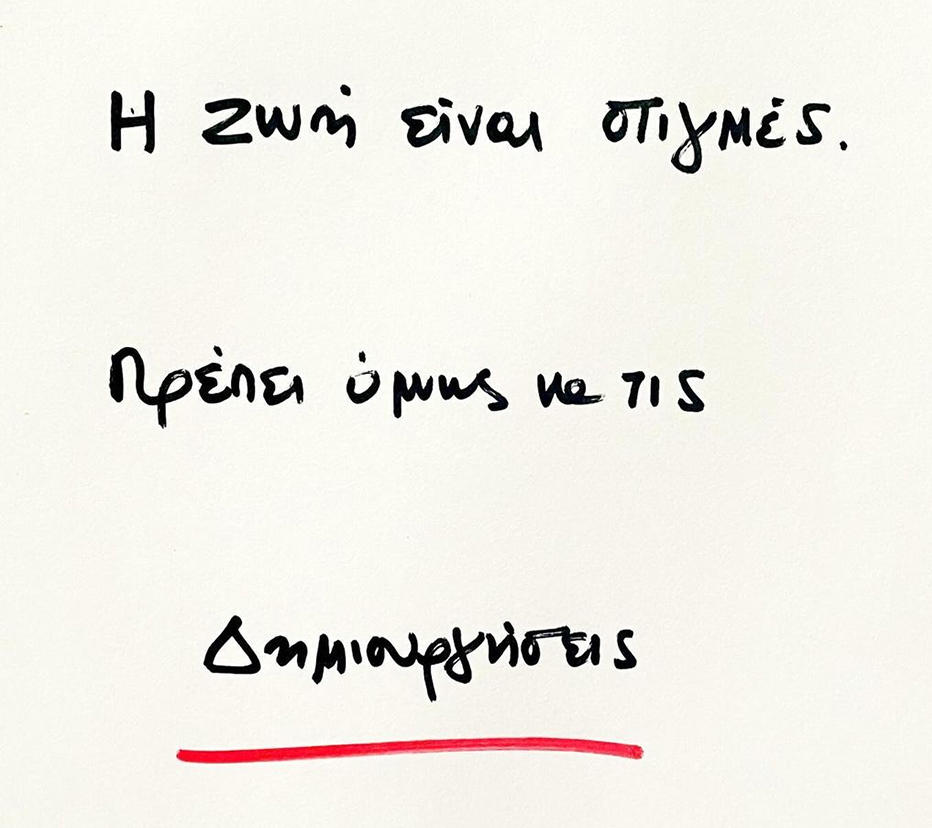 Η Ζωή είναι στιγμές.
Πρέπει όμως να τις
Δημιουργήσεις